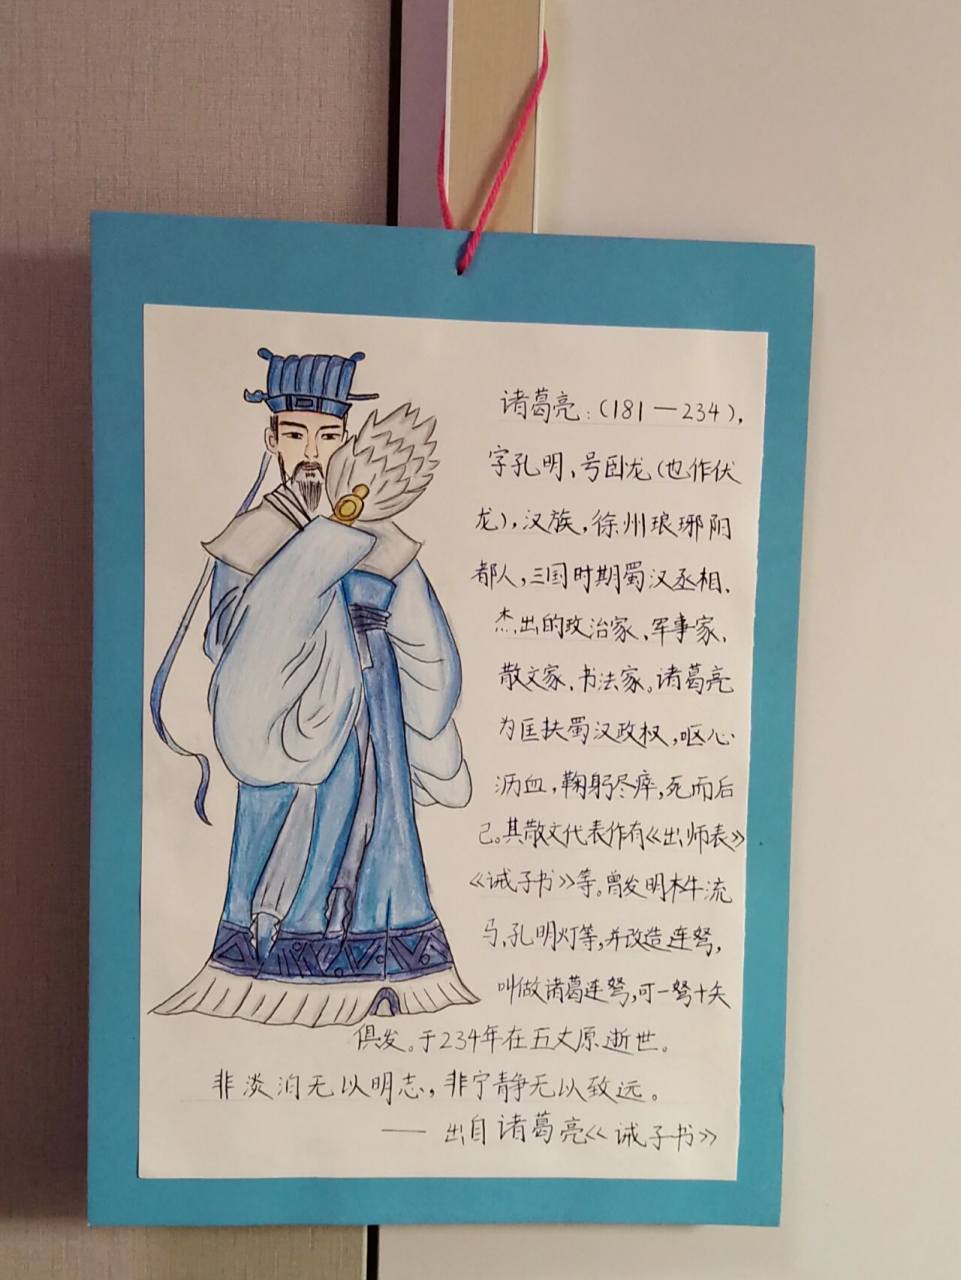 诸葛亮:(181—234),
字孔明、号卧龙(也作伏
龙),汉族,徐州琅琊阳
都人,三国时期蜀汉丞相、
杰出的政治家、军事家、
散文家、书法家。诸葛亮
为匡扶蜀汉政权,呕心
沥血,鞠躬尽瘁,死而后
己。其散文代表作有《出师表》
《诫子书》等。曾发明木牛流
马、孔明灯等,并改造连弩,
叫做诸葛连弩,可一弩十矢
俱发。于234年在五丈原逝世。
非淡泊无以明志,非宁静无以致远。
——出自诸葛亮《诫子书》